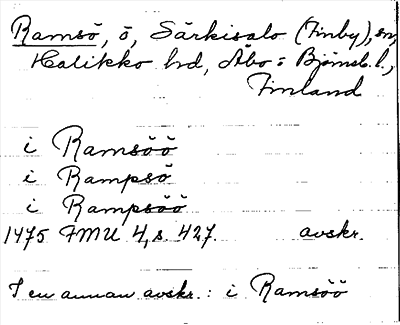 Ramsö, ö, Särkisalo (Finby), sn,
Halikko hd, Åbo o Björneb. l.,
Finland
i Ramsöö
i Rampsö
i Rampsöö
1475 FMU 4, s. 427. avskr.
I en annan avskr.: i Ramsöö